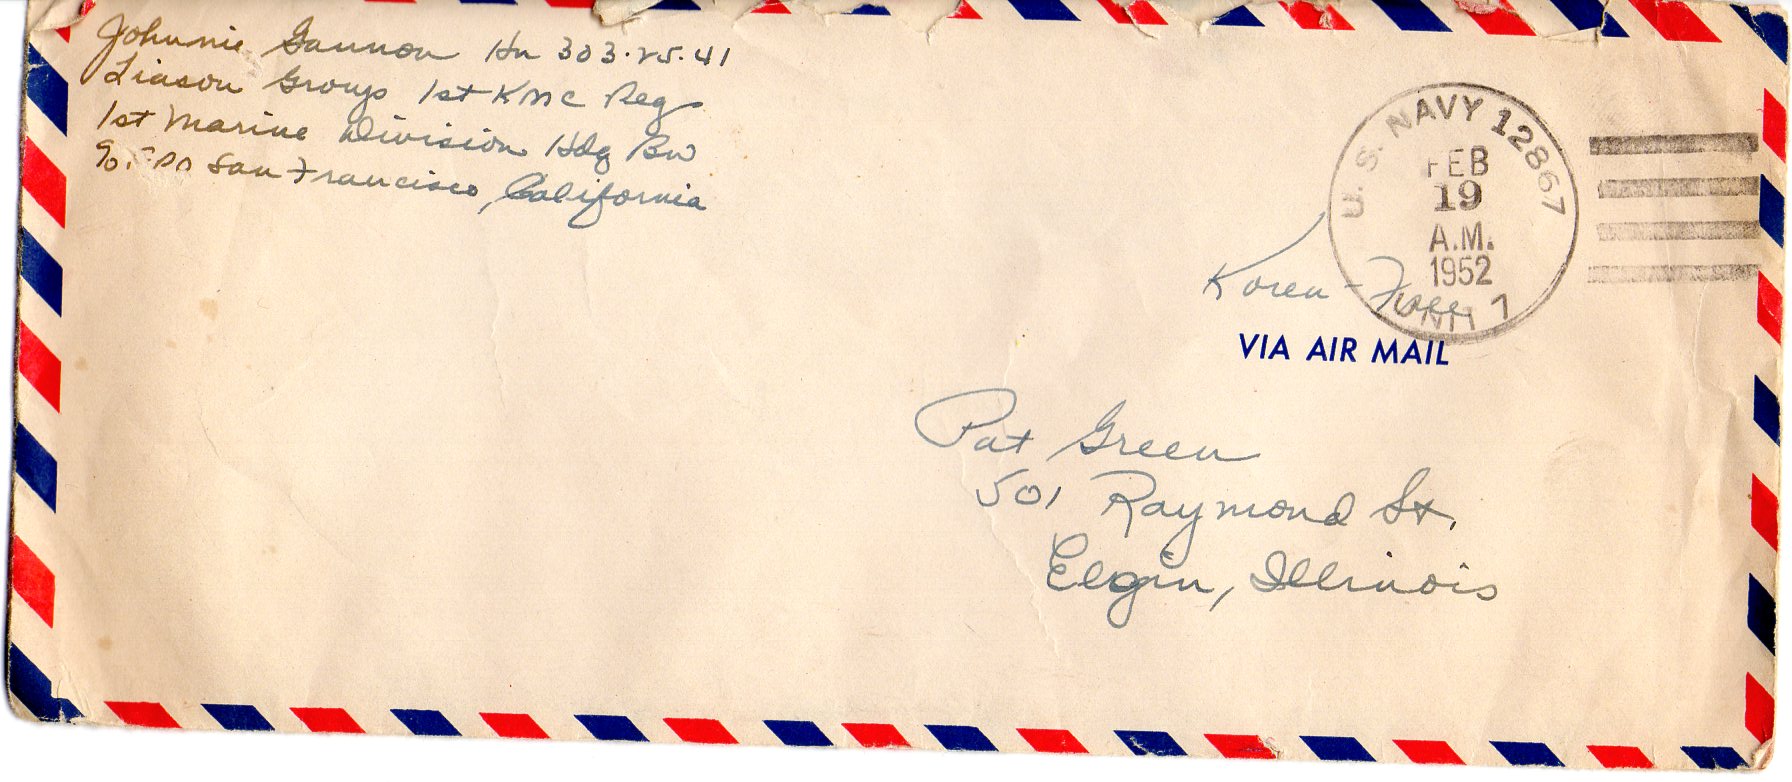 Johnnie Gannon Hn 303.25.41
Liason Group 1st KMC Reg
1st Marine Division Hdq Bn
℅ FPO San Francisco, California
U.S. NAVY 12867
FEB
19
A.M.
1952
UNIT 1
Korea - Free
VIA AIR MAIL
Pat Green
501 Raymond St.
Elgin, Illinois